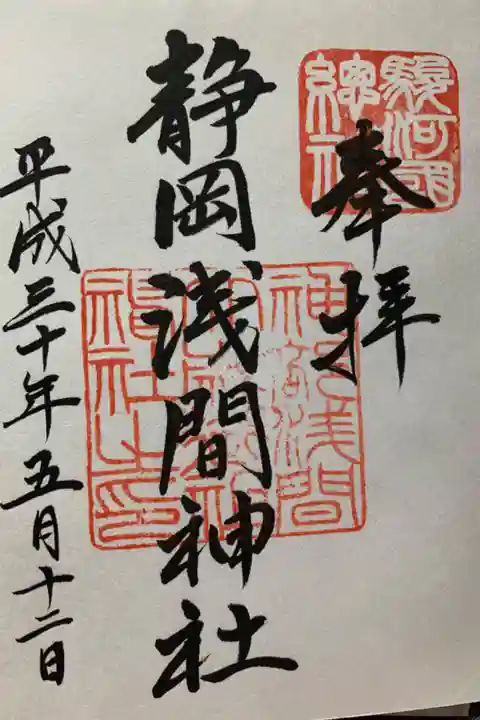 奉拝
駿河國
總社
静岡浅間神社
神部浅間
平成三十年五月十二日